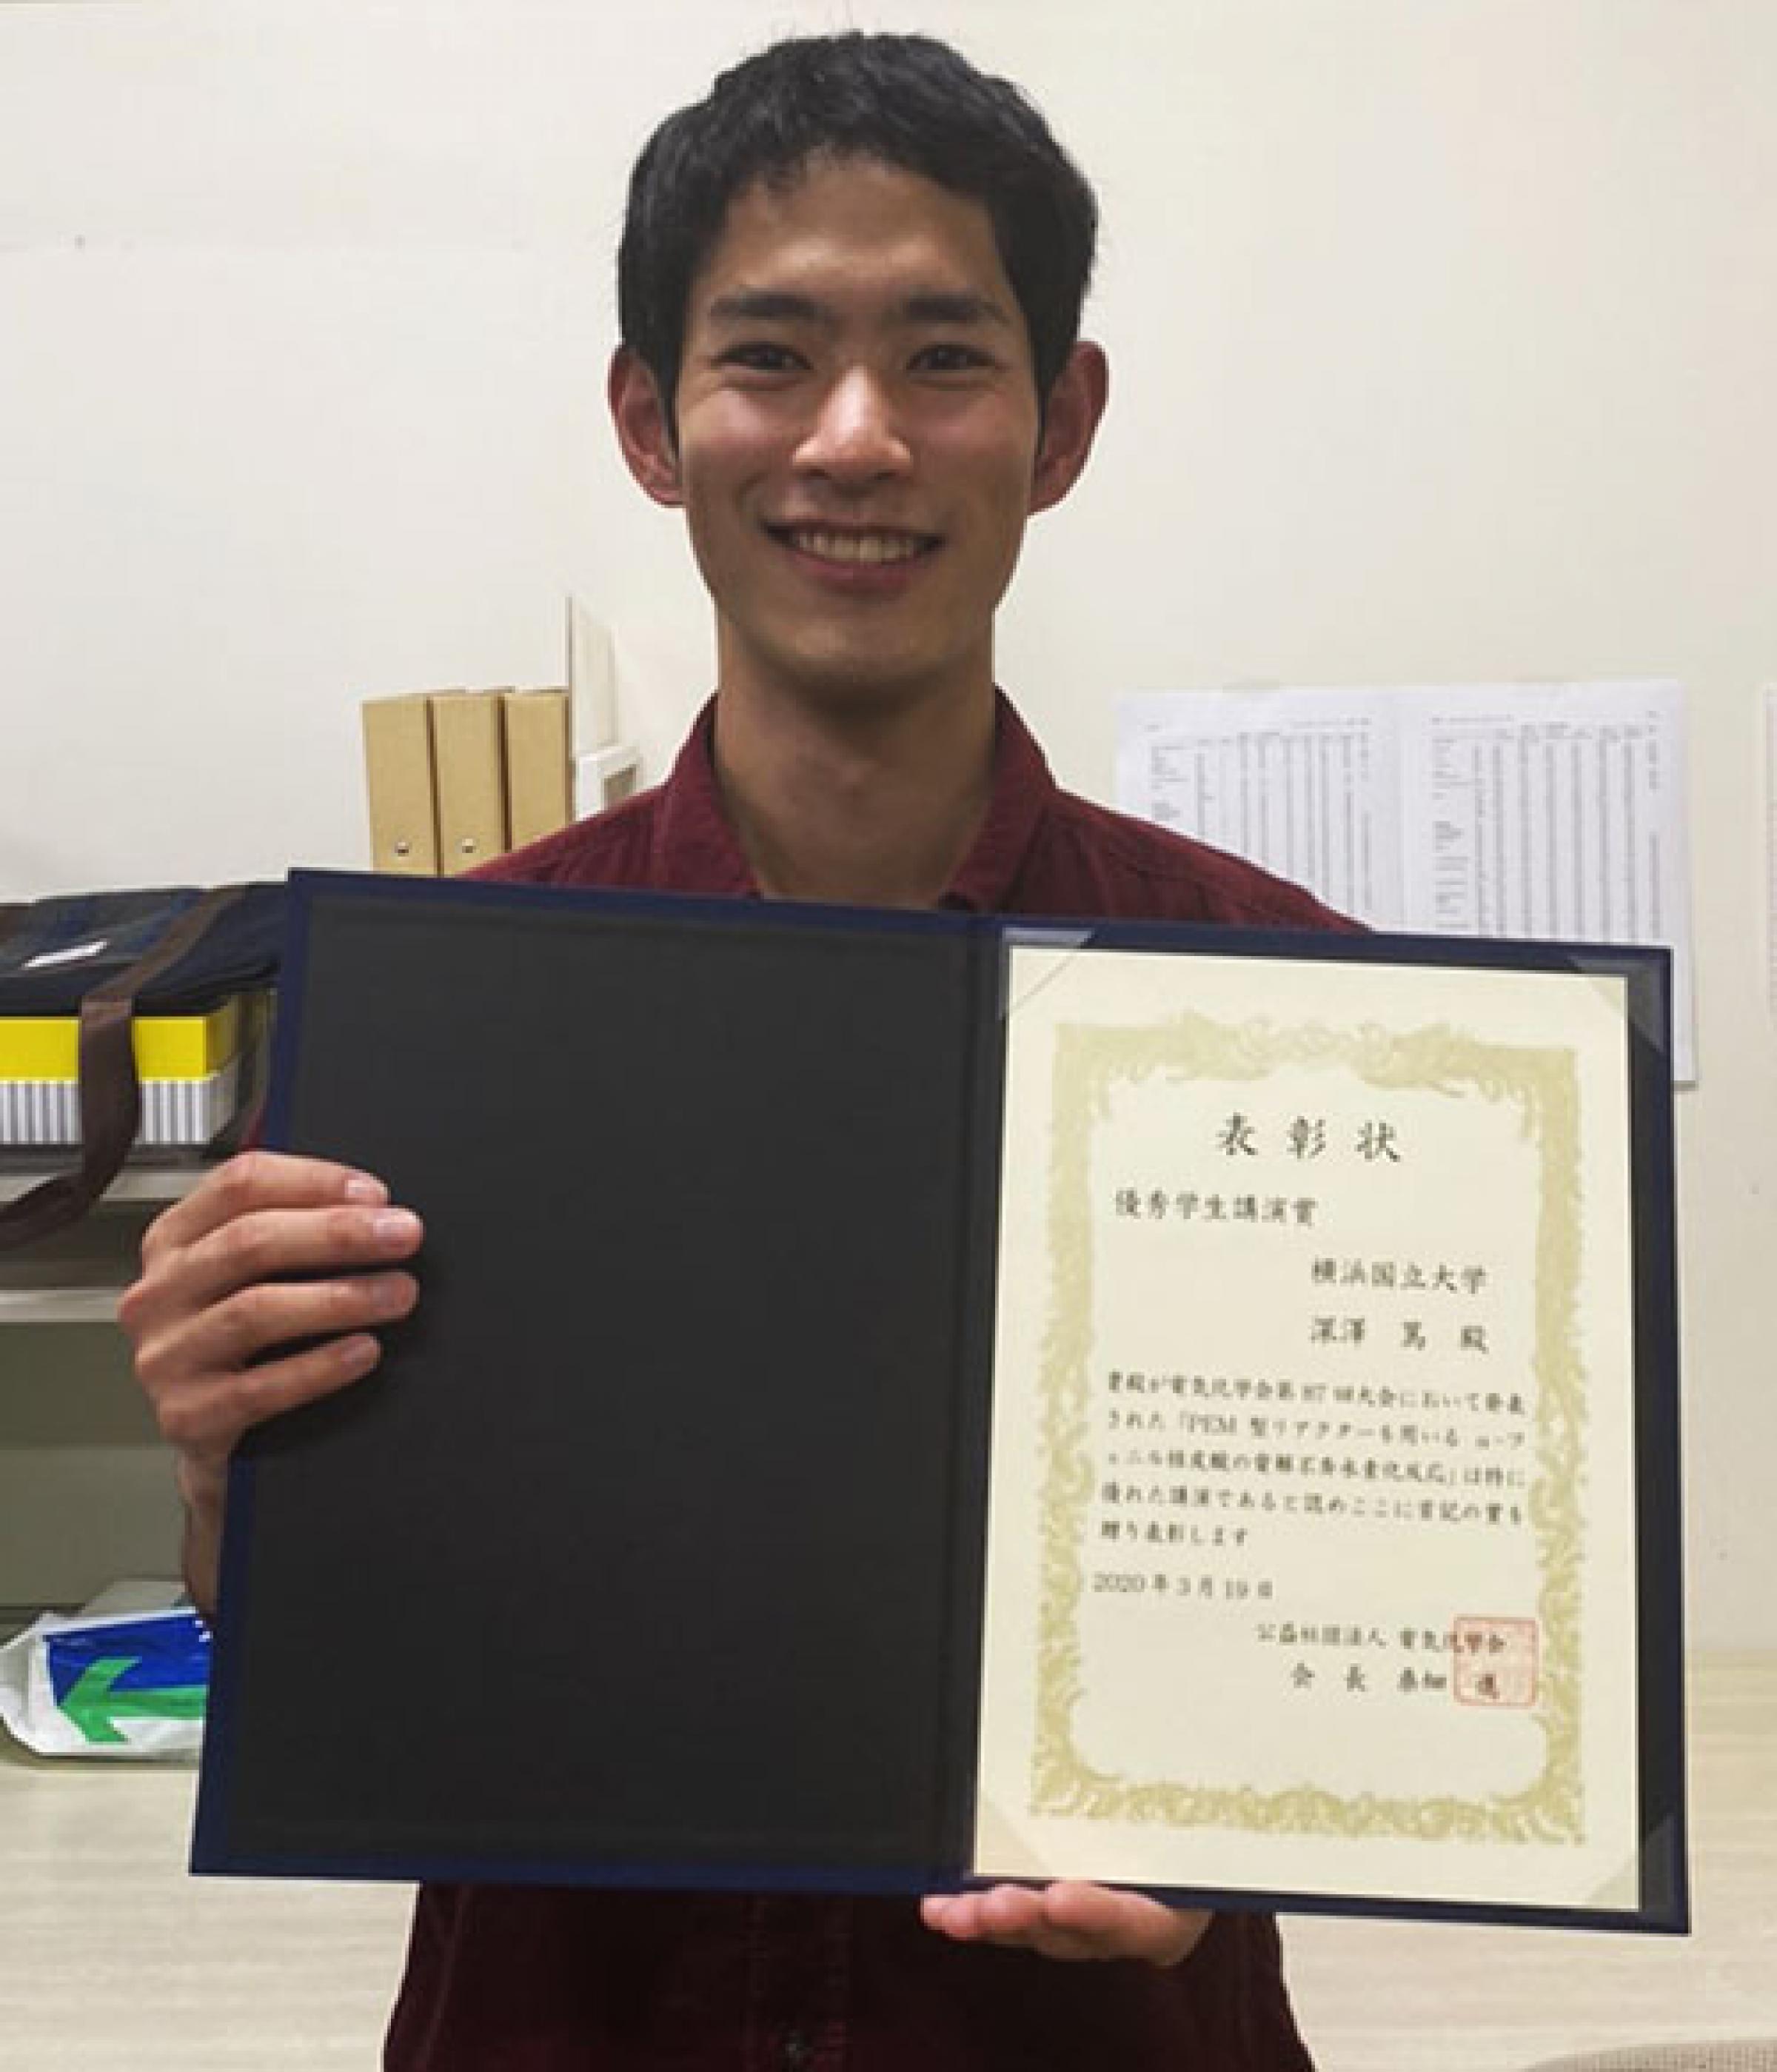 表彰状
優秀学生講演賞
横浜国立大学
深澤 篤 殿
貴殿が電気化学会第87回大会において発表
された「PEM型リアクターを用いる α-フ
ェニル桂皮酸の電解不斉水素化反応」は特に
優れた講演であると認めここに首記の賞を
贈り表彰します
2020年3月19日
公益社団法人 電気化学会
会長 桑畑 進